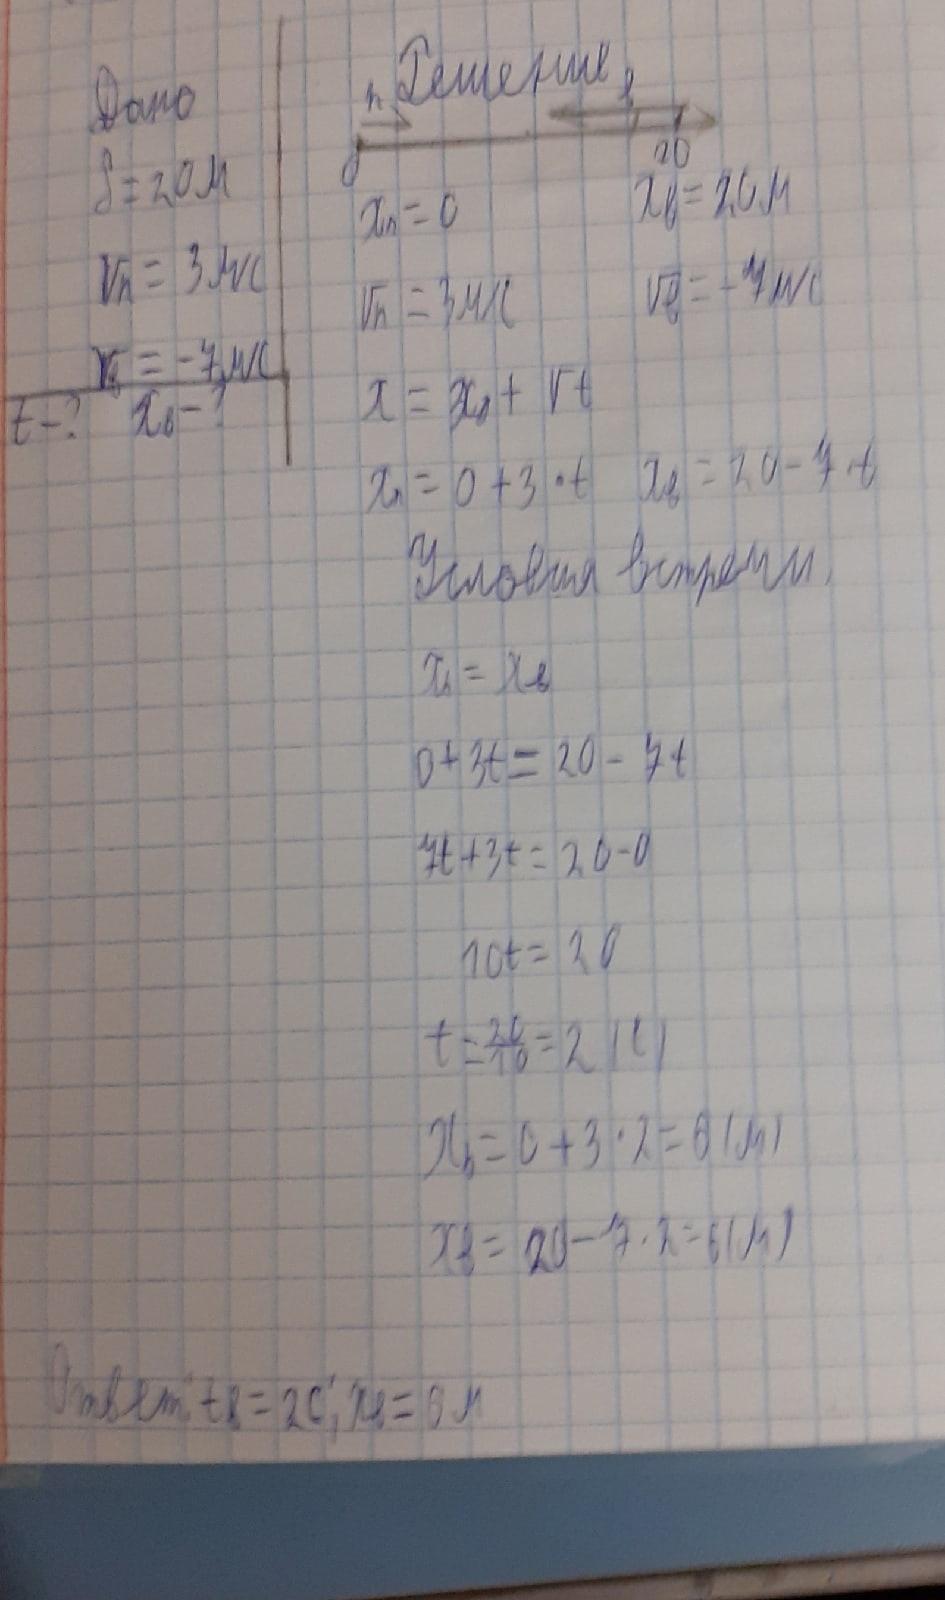 Дано
S = 20 м
vп = 3 м/с
vв = -7 м/с
t - ? xв - ?
Решение
п в
0 20
xп = 0 xв = 20 м
vп = 3 м/с vв = -7 м/с
x = x₀ + vt
xп = 0 + 3 · t xв = 20 - 7 · t
Условия встречи
xп = xв
0 + 3t = 20 - 7t
7t + 3t = 20 - 0
10t = 20
t = 20/10 = 2 (с)
xп = 0 + 3 · 2 = 6 (м)
xв = 20 - 7 · 2 = 6 (м)
Ответ: tв = 2с; xв = 6 м